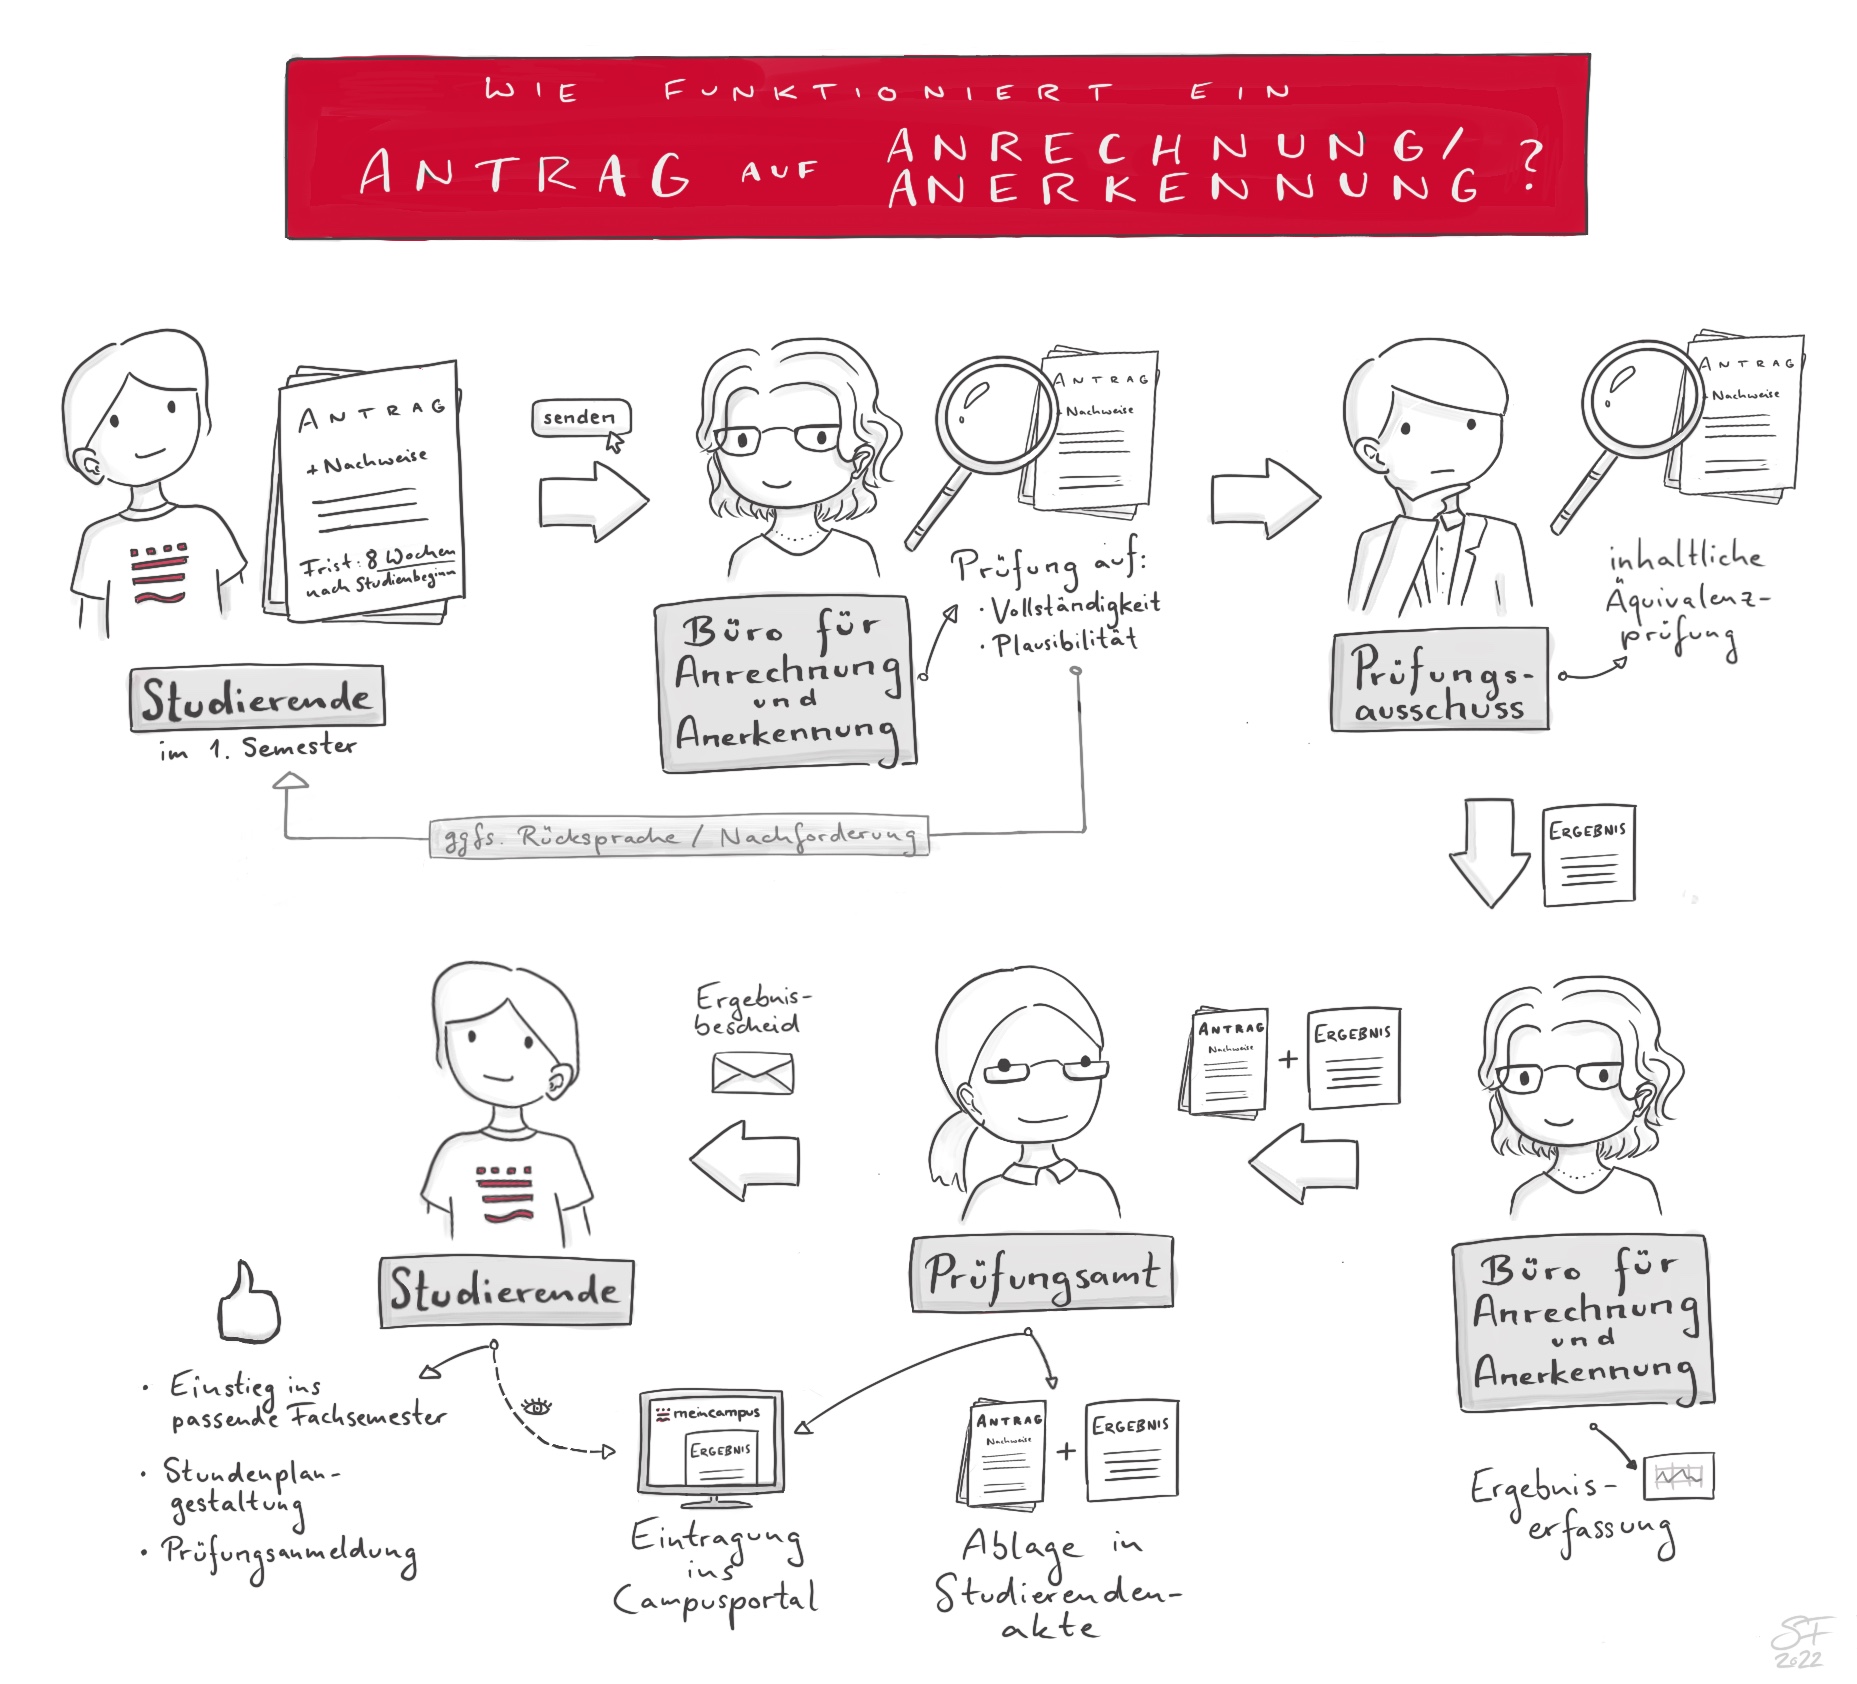 WIE FUNKTIONIERT EIN
ANTRAG AUF ANRECHNUNG/
ANERKENNUNG?
ANTRAG
+ Nachweise
Frist: 8 Wochen
nach Studienbeginn
Studierende
im 1. Semester
senden
Büro für
Anrechnung
und
Anerkennung
ANTRAG
+ Nachweise
Prüfung auf:
· Vollständigkeit
· Plausibilität
ggfs. Rücksprache / Nachforderung
Prüfungs-
ausschuss
ANTRAG
+ Nachweise
inhaltliche
Äquivalenz-
prüfung
ERGEBNIS
Büro für
Anrechnung
und
Anerkennung
Ergebnis-
erfassung
ANTRAG
Nachweise
+
ERGEBNIS
Prüfungsamt
ANTRAG
Nachweise
+
ERGEBNIS
Ablage in
Studierenden-
akte
meincampus
ERGEBNIS
Eintragung
ins
Campusportal
Ergebnis-
bescheid
Studierende
· Einstieg ins
passende Fachsemester
· Stundenplan-
gestaltung
· Prüfungsanmeldung
SF
2022